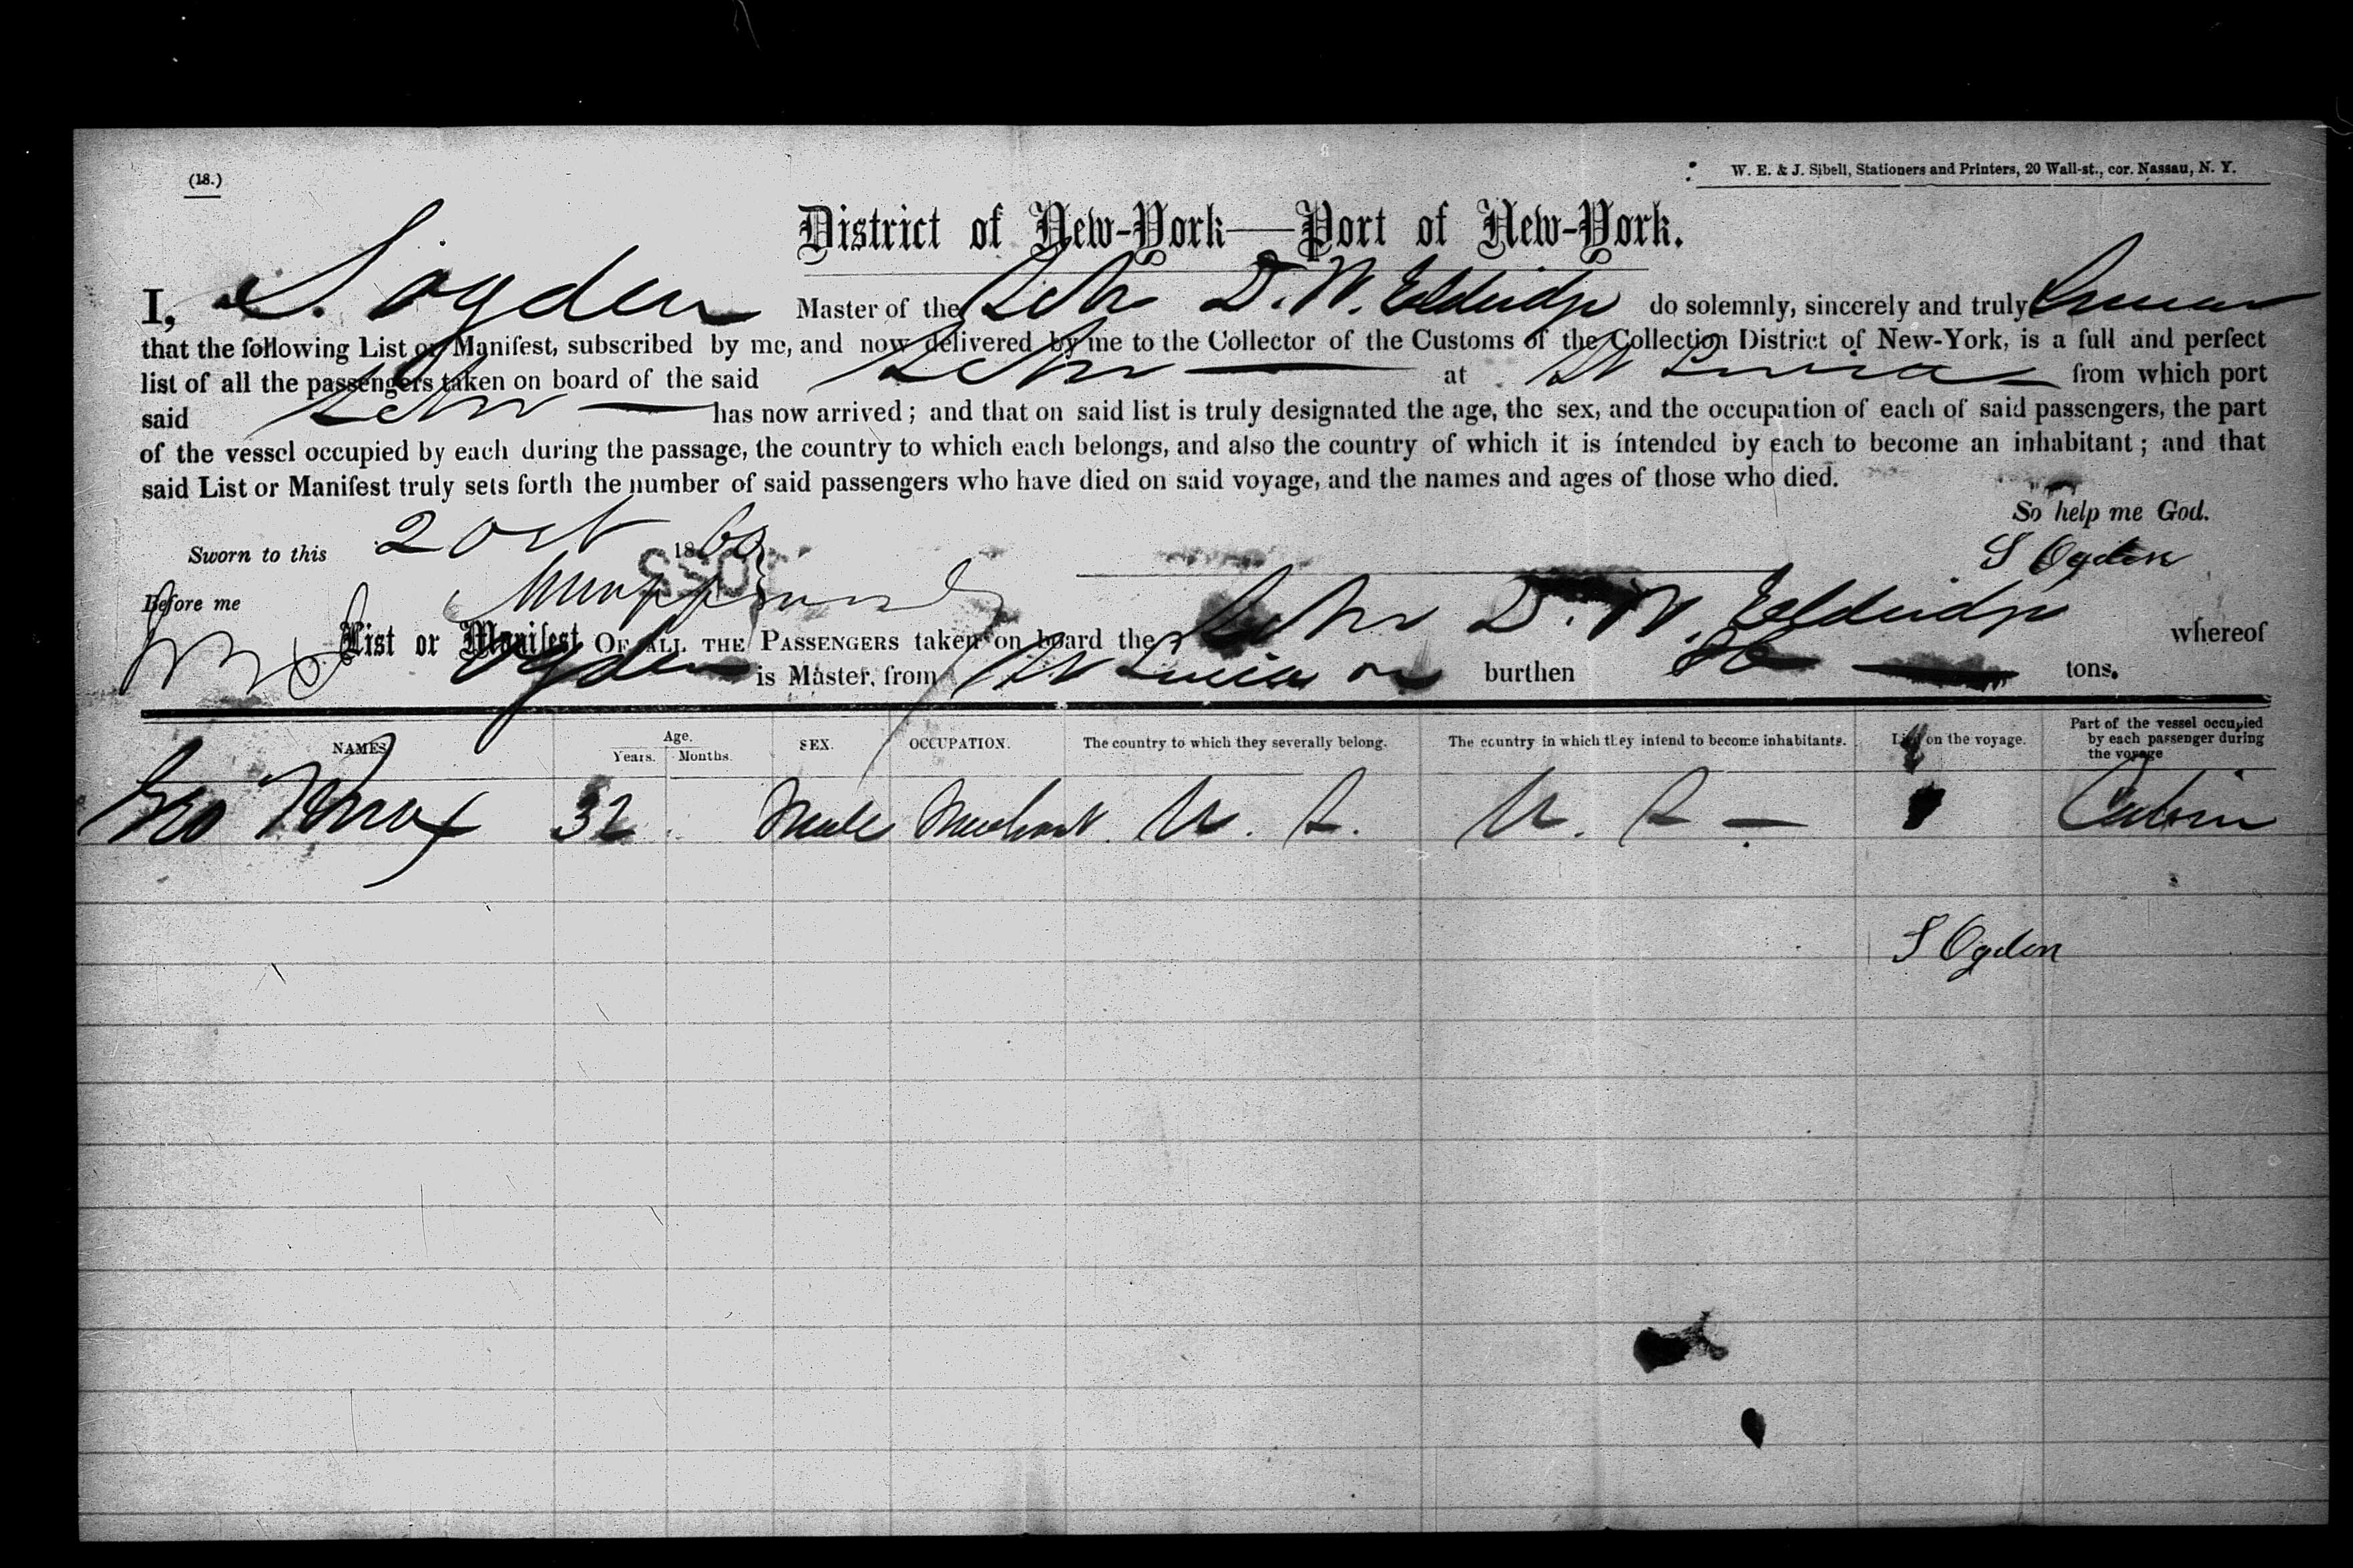 (18.)
W. E. & J. Sibell, Stationers and Printers, 20 Wall-st., cor. Nassau, N. Y.
District of New-York—Port of New-York.
I, S. Ogden Master of the Schr D. W. Eldridge do solemnly, sincerely and truly Swear
that the following List or Manifest, subscribed by me, and now delivered by me to the Collector of the Customs of the Collection District of New-York, is a full and perfect
list of all the passengers taken on board of the said Schr — at St Lucia — from which port
said Schr — has now arrived; and that on said list is truly designated the age, the sex, and the occupation of each of said passengers, the part
of the vessel occupied by each during the passage, the country to which each belongs, and also the country of which it is intended by each to become an inhabitant; and that
said List or Manifest truly sets forth the number of said passengers who have died on said voyage, and the names and ages of those who died.
So help me God.
Sworn to this 2 Oct 1860
S Ogden
Before me
List or Manifest OF ALL THE PASSENGERS taken on board the Schr D. W. Eldridge whereof
Ogden is Master, from St Lucia burthen tons.
NAMES Age. Years. Months. SEX. OCCUPATION. The country to which they severally belong. The country in which they intend to become inhabitants. Died on the voyage. Part of the vessel occupied by each passenger during the voyage
Geo 32 Male Merchant U. S. U. S. — Cabin
S Ogden